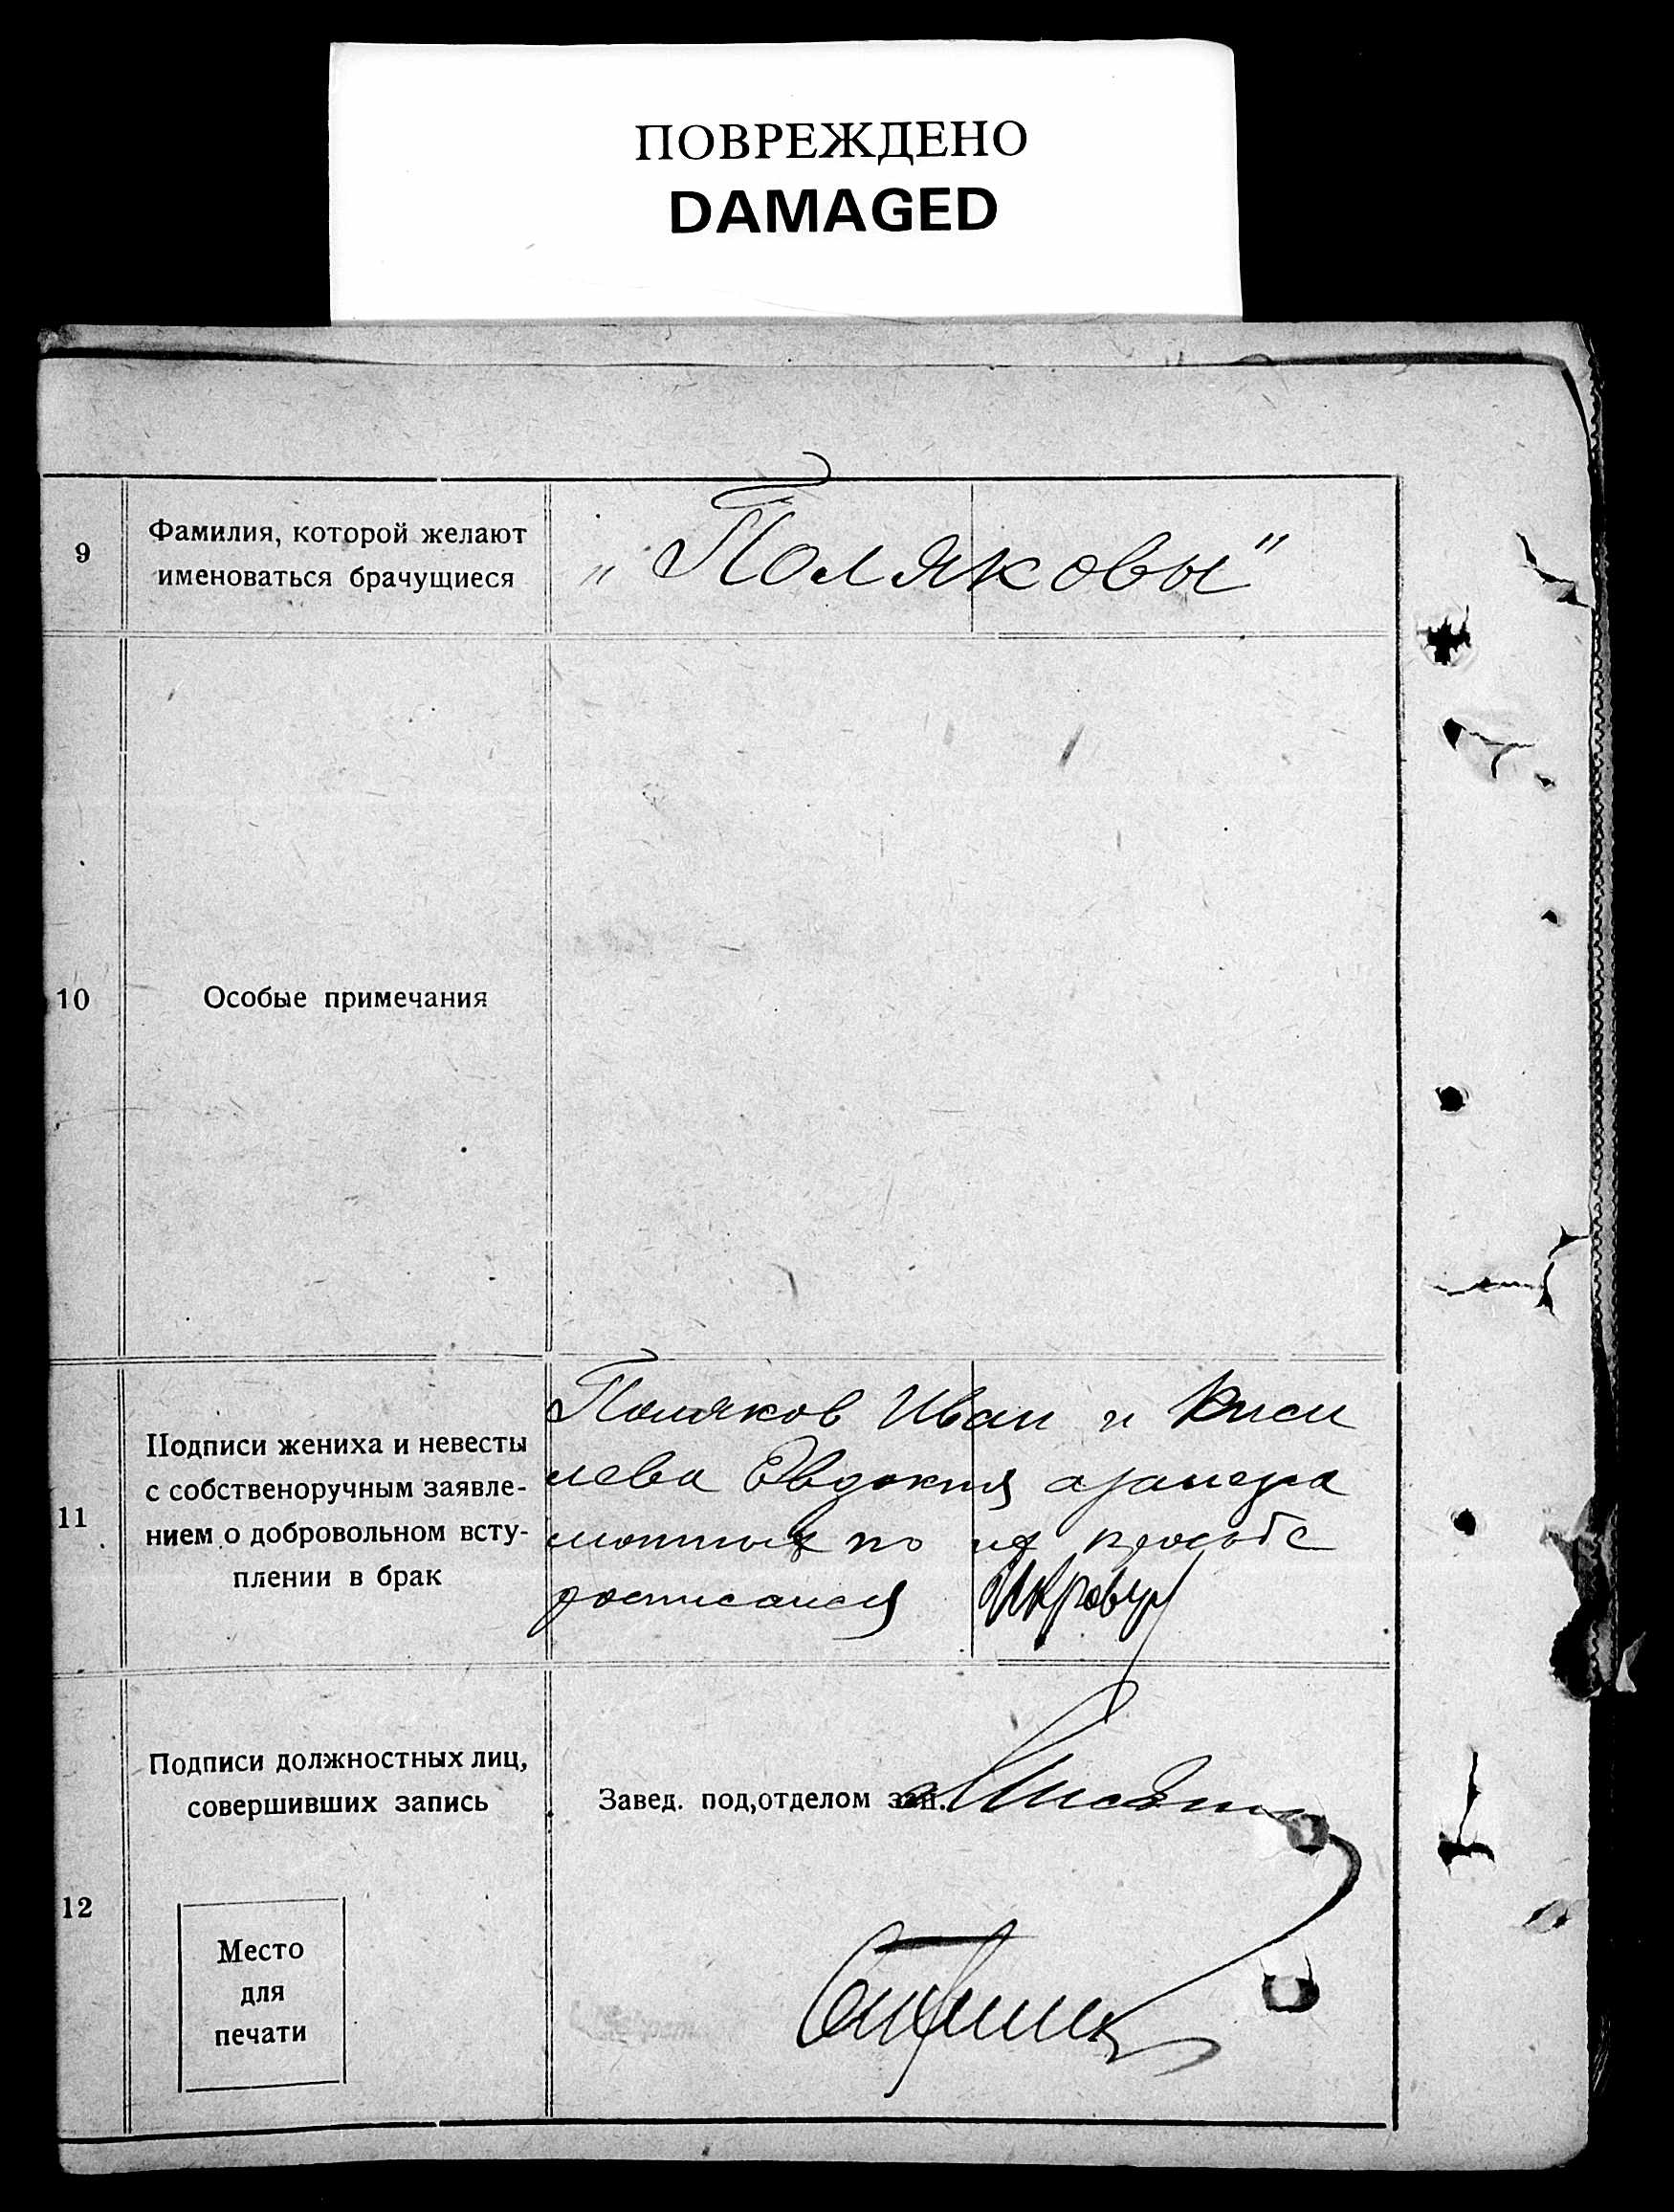 ПОВРЕЖДЕНО
DAMAGED
9
Фамилия, которой желают
именоваться брачущиеся
„Поляковы"
10
Особые примечания
11
Подписи жениха и невесты
с собственоручным заявле-
нием о добровольном всту-
плении в брак
Поляков Иван и Кисе
лева Евдокия
по их просьбе
росписался
12
Подписи должностных лиц,
совершивших запись
Завед. под,отделом зап.
Место
для
печати